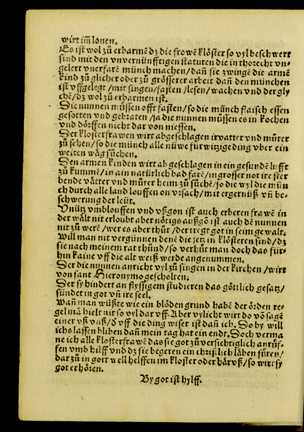 wirt im lonen.
Es ist wol zů erbarmē dz die frowē klöster so vyl beschwert
sind mit den unvernünfftigen statuten die in
gelert unerfarē münch machen/ daň sie zwingē die armē
kind zů glicher oder zů grösserer arbeit dan den münchen
ist uffgelegt/ mit singen/ fasten/ lesen/ wachen und der gly
chē/ dz wol zů erbarmen ist.
Die nunnen müssen offt fasten/ so die münch flaisch essen
gesotten und gebraten/ ja die nunnen müssen es in kochen
und dörffen nicht dar von niessen.
Der klosterfrawen wirt abgeschlagen ir vatter und můter
zů sehen/ so die münch alle nüwe fürwitz gedīng uber ein
weiten wäg sůchen.
Den armen kinden wirt ab geschlagen in ein gesunde lufft
zů kummē/ in ain natürlich bad farē/ in grosser not ire ster
bende vätter und můter heim zů sůchē/ so die vyl die mün
ch durch alle land louffen on ursach/ mit ergernüß uň be
schwerung der leüt.
Unütz umblouffen und ußgon ist auch etheren nunnen in
der wält nit erloubt aber nötige außgē ist auch bē frawē in
nit zů werē/ wer es aber thůt/ der tregt got in seim gewalt.
Will man nit vergünnen dend die jem in Klöstern sind/ dz
sie nach meinem rat thünd/ so verhüt man doch das für
hin kaine uff die alt weiß werde angenummen.
Der die nunnen antrichē vyl zů singen in der kirchen/ wirt
von sant Hieronymo gescholten.
Der sy hindert an flyssigem studieren das götlich gesatz/
sündet in got und ire seel.
Wan man wüßte wie ein blöden grund habē der ördē re
geln/ mā hielt nit so vyl dar uff. Aber vylicht wirt do vō sagē
einer uß vaß/ d uff die ding wiser ist daň ich. So baß will
ichs lassen bliben daň mein tag hat ein end. Doch verma
ne ich alle klosterfrawē das sie got zů versichtiglich anrüf
fen umb hilff und dz sie begeren ein christlich läben fürē/
dar zů in gott well helffen im kloster oder harusß/ so wirt sy
got erhören.
By got ist hylff.